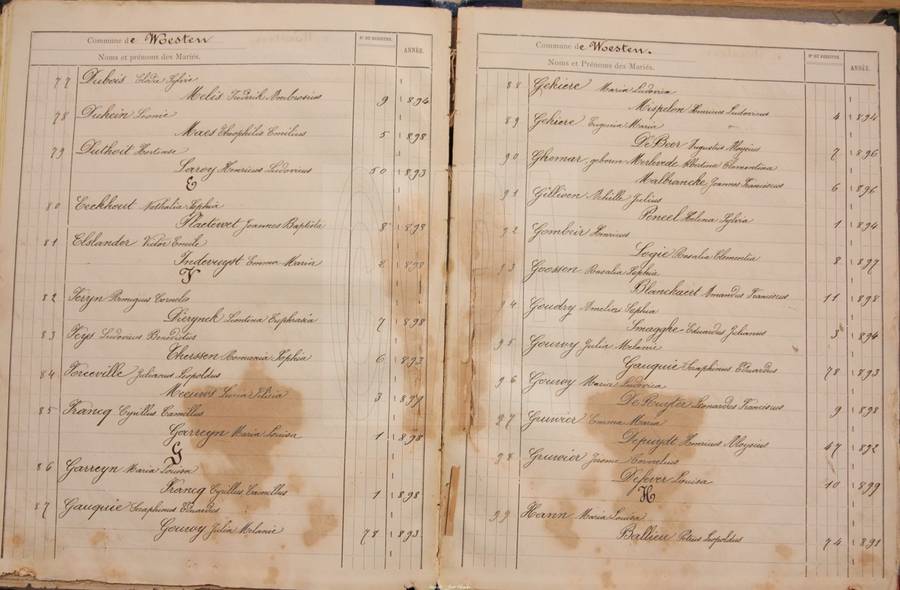 Commune de Woesten
Noms et prénoms des Mariés.
N° DU REGISTRE.
ANNÉE.
77 Dubois Elodie Sylvie
Melis Frederik Ambrosius 9 1894
78 Duhein Leonie
Maes Theophilus Emilius 5 1898
79 Duthoit Hortense
Leroy Henricus Ludovicus 50 1893
E
80 Eeckhout Nathalia Sophia
Plactevoet Joannes Baptiste 8 1898
81 Elslander Victor Emile
Indevuyst Emma Maria 2 1898
F
82 Feryn Remigius Cornelis
Dierynck Leontina Euphrasia 7 1898
83 Feys Ludovicus Benedictus
Therssen Germania Sophia 6 1893
84 Forceville Julianus Leopoldus
Meeuws Lucia Felicia 3 1899
85 Francq Cyrillus Camillus
Garreyn Maria Louisa 1 1898
G
86 Garreyn Maria Louisa
Francq Cyrillus Camillus 1 1898
87 Gauquie Seraphinus Eduardus
Gouwy Julia Melanie 78 1893
Commune de Woesten.
Noms et Prénoms des Mariés.
N° DU REGISTRE.
ANNÉE.
88 Gekiere Maria Ludovica
Mispelon Henricus Ludovicus 4 1894
89 Gekiere Eugenia Maria
De Beer Augustus Aloysius 7 1896
90 Ghomar, geboren Merlevede Albertina Clementina
Malbrancke Joannes Franciscus 6 1896
91 Gillioen Achille Julius
Poncel Helena Sylvia 1 1894
92 Gombeir Henricus
Logie Rosalia Clementia 8 1897
93 Goossen Rosalia Sophia
Blanckaert Amandus Franciscus 11 1898
94 Goudry Amelica Sophia
Smagghe Eduardus Julianus 3 1894
95 Gouwy Julia Melanie
Gauquie Seraphinus Eduardus 78 1893
96 Gouwy Maria Ludovica
De Ruyter Leonardus Franciscus 9 1898
97 Gruwier Emma Maria
Depuydt Henricus Aloysius 47 1892
98 Gruwier Jerome Cornelius
Defever Louisa 10 1899
H
99 Hann Maria Louisa
Ballieu Petrus Leopoldus 74 1891